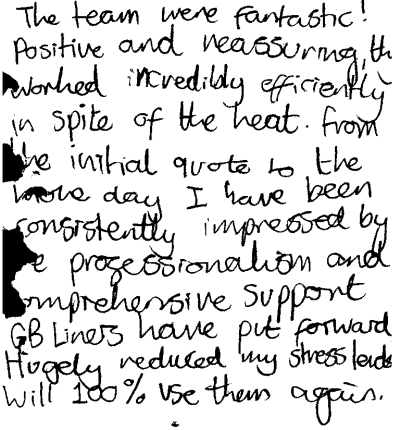 The team were fantastic!
Positive and reassuring, th
worked incredibly efficiently
in spite of the heat. From
the initial quote to the
move day I have been
consistently impressed by
e professionalism and
omprehensive support
GB Liners have put forward
Hugely reduced my stress levels
Will 100% use them again.